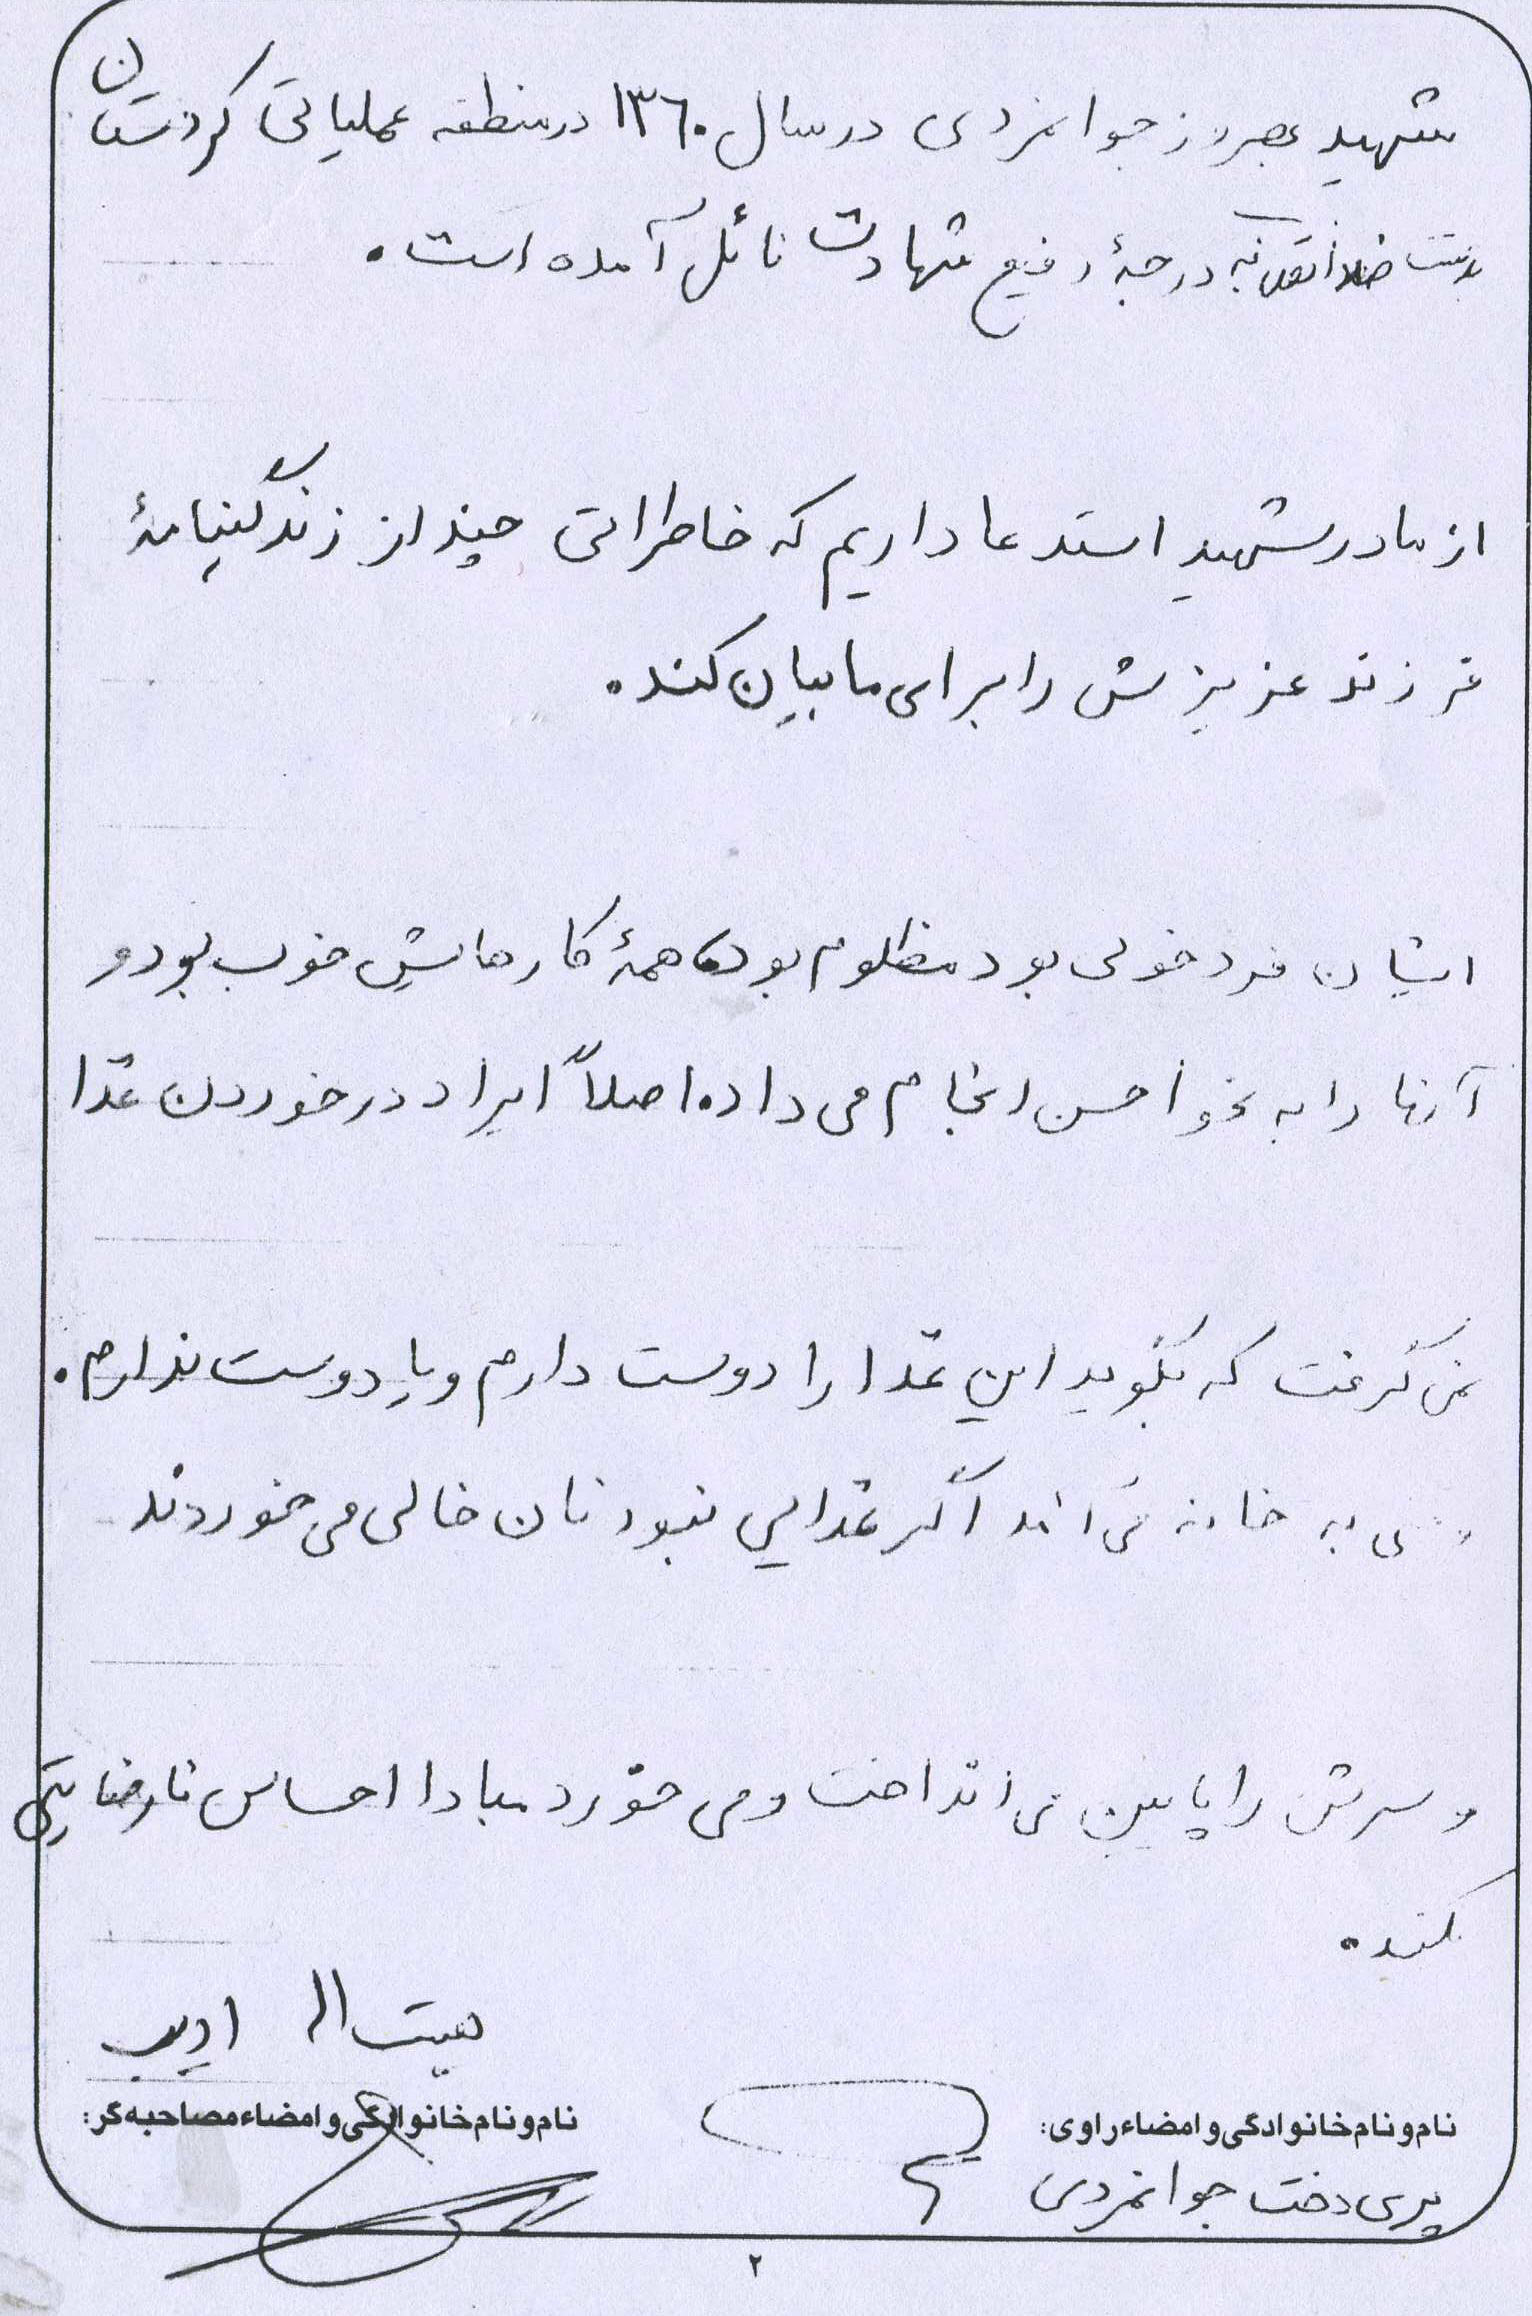 شهید بهروز جوانمردی در سال ۱۳٦۰ در منطقه عملیاتی کردستان
بدست ضدانقلاب به درجهٔ رفیع شهادت نائل آمده است.
از مادر شهید استدعا داریم که خاطراتی چند از زندگینامهٔ
فرزند عزیزش را برای ما بیان کند.
ایشان فرد خوبی بود مظلوم بود همهٔ کارهایش خوب بود و
آنها را به نحو احسن انجام می داد. اصلاً ایراد در خوردن غذا
نمی گرفت که بگوید این غذا را دوست دارم و یا دوست ندارم.
وقتی به خانه می آمد اگر غذایی نبود نان خالی می خوردند
و سرش را پایین می انداخت و می خورد مبادا احساس نارضایتی
بکند.
ادیب
نام و نام خانوادگی و امضاء راوی: نام و نام خانوادگی و امضاء مصاحبه گر:
پری دخت جوانمردی
۲